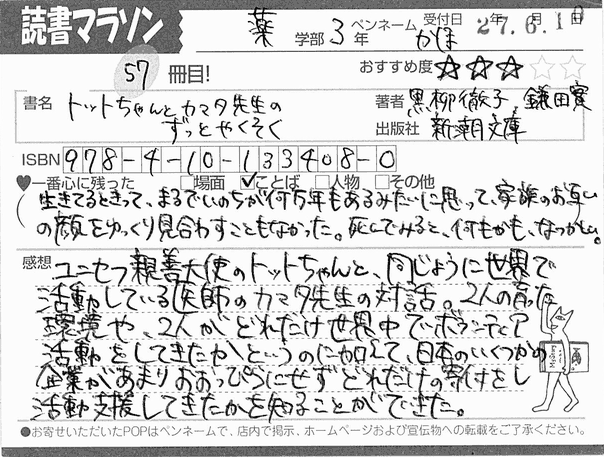 読書マラソン
薬 学部 3 年 ペンネーム かほ 受付日 27年 6月 1日
57 冊目!
おすすめ度 ★★★☆☆
書名 トットちゃんとカマタ先生の
ずっとやくそく
著者 黒柳徹子、鎌田實
出版社 新潮文庫
ISBN 978-4-10-133408-0
♥一番心に残った □場面 ☑ことば □人物 □その他
生きてるときって、まるでいのちが何万年もあるみたいに思って、家族のお互い
の顔をゆっくり見合わすこともなかった。死んでみると、何もかも、なつかしい。
感想 ユニセフ親善大使のトットちゃんと、同じように世界で
活動している医師のカマタ先生の対話。2人の育った
環境や、2人がどれだけ世界中でボランティア
活動をしてきたかというのに加えて、日本のいくつかの
企業があまりおおっぴらにせずどれだけの寄付をし
活動支援してきたかを知ることができた。
●お寄せいただいたPOPはペンネームで、店内で掲示、ホームページおよび宣伝物への転載をご了承ください。